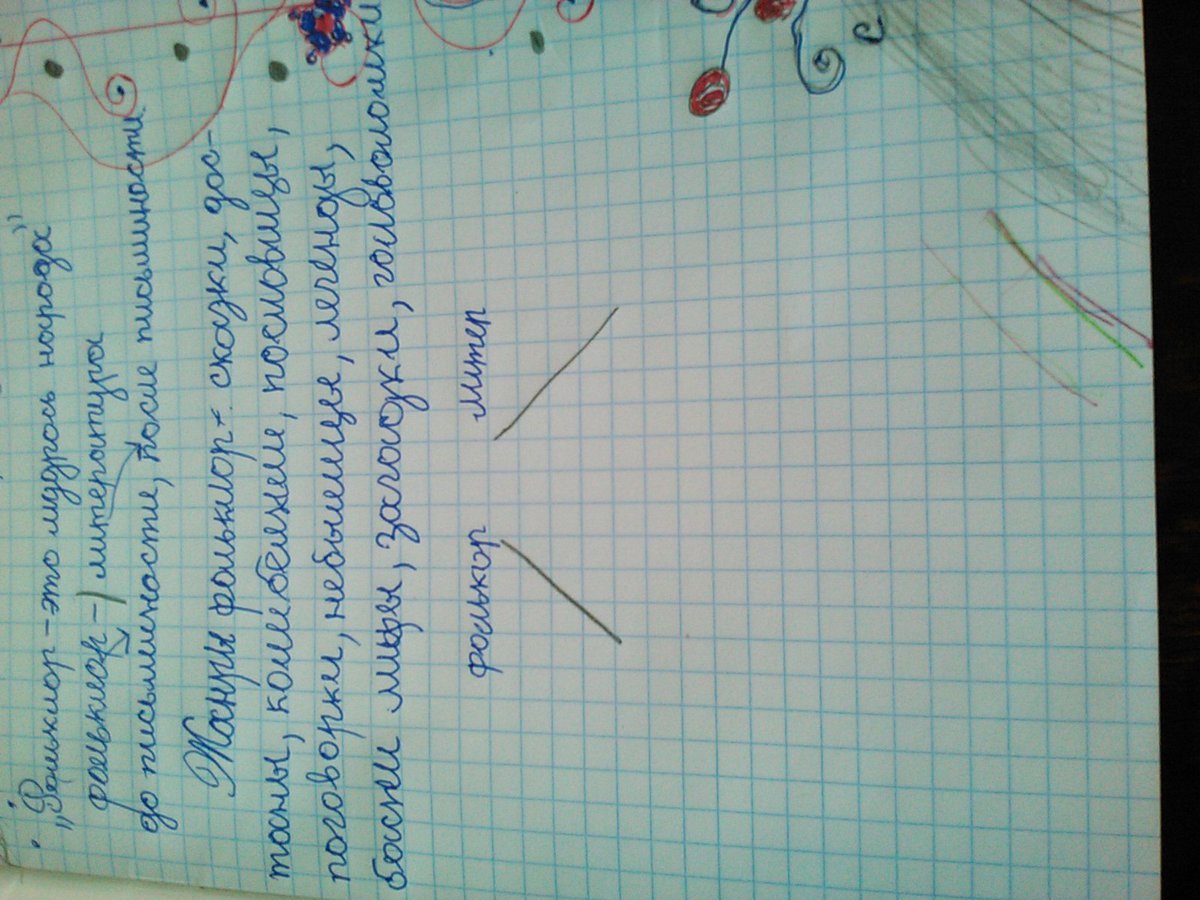 „Фольклор - это мудрось народа"
фольклор - литературы
до письменности, после письминости.
Жанры фольклор - сказки, дос-
таны, колыбелние, пословицы,
поговорки, небылице, легенды,
басни мицы, загодки, головоломки
фолькор литер
е